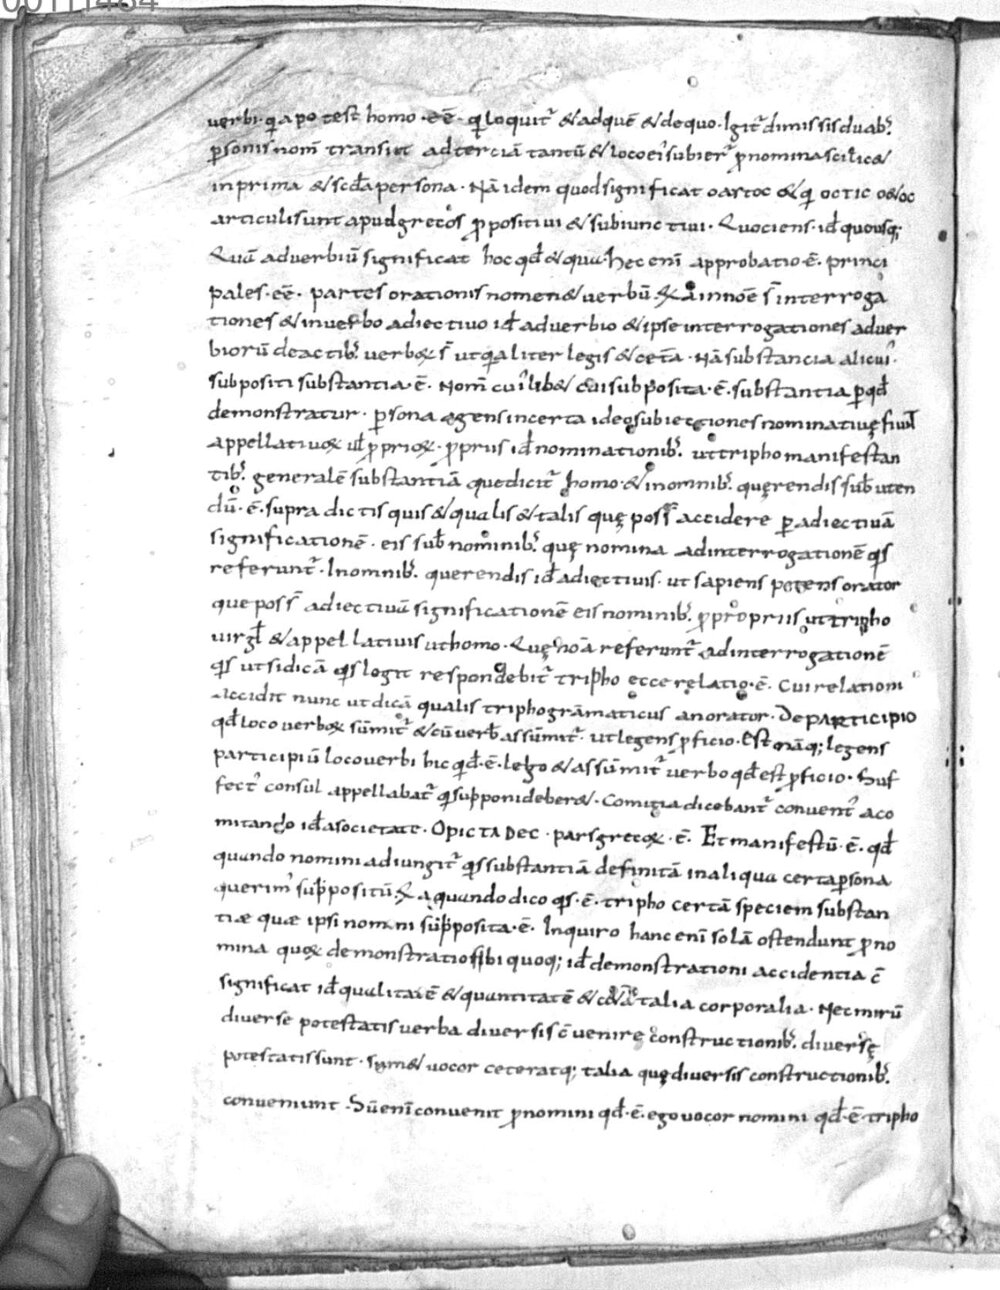 00111484
verbi· q̄ a potest homo ·eē· q̄ loquit᷑ & adquē & dequo· Igit᷑ dimissis duab᷒
p̱sonis nom̄ transiet adterciā tantū & loco ei᷒ subier᷑ p̄nomina scilic&
inprima & scďa persona· Nā idem quod significat oastoc & q̄ octic o&oc
articuli sunt apud grecos p̄positiui & subiunctiui· Quociens· iđ quousq;
Quā aduerbiū significat hoc qđ & qua· hec eni᷒ approbatio·ē· princi
pales·eē· partes orationis nomen & uerbū· in noē s̄ interroga
tiones & inuerbo adiectiuo iđ aduerbio & ipse interrogationes aduer
biorū deactib᷒ uerboꝝ s̄ ut qualiter legis & ceta᷑· Nā substancia alicui᷒·
subpositi substantia·ē· Nom̄ cui᷒lib& cui subposita·ē· substantia p̱qđ
demonstratur· p̱sona agens incerta ideo subiectiones nominatiuę fiunt
appellatiuoꝝ uł p̱prioꝝ· p̱priis iđ nominationib᷒ ut tripho manifestan
tib᷒· generalē substantiā que dicit᷑ homo· & inomnib᷒ quęrendis sub uten
dū·ē· supra dictis quis & qualis & talis quę poss̄ accidere p̱ adiectiuā
significationē· eis sub nominib᷒ quę nomina adinterrogationē q̄s
referunt᷑· Inomnib᷒ querendis iđ adiectiuis· ut sapiens potens orator
que poss̄ adiectiuā significationē eis nominib᷒ p̱propriis ut tripho
uirgł & appellatiuis ut homo· Quę nōā referunt᷑ adinterrogationē
q̄s ut si dicā q̄s legit respondebit᷑ tripho ecce relatio·ē· Cui relationi
accidit nunc ut dicā qualis tripho grāmaticus an orator· De PARTICIPIO
qđ loco uerboꝝ sūmit᷑ & cū uerb̄ assūmit᷑· ut legens p̱ficio· Est nāq; legens
participiū loco uerbi hic qđ·ē· lego & assūmit᷑ uerbo qđ est p̱ficio· Suf
fect᷒ consul appellabat᷑ q̄ supponi deber&· Comitia dicebant᷑ conuent᷒ aco
mitando iđ a societate· OPICTA DEC· pars grecoꝝ·ē· Et manifestū·ē· qđ
quando nomini adiungit᷑ q̄s substantiā definitā in aliqua certa p̱sona
querim᷒ suppositū· quando dico q̄s·ē· tripho certā speciem substan
tiæ quæ ipsi nomini supposita·ē· Inquiro hanc eni᷒ solā ostendunt p̱no
mina quoꝝ demonstratio sibi quoq; iđ demonstrationi accidentia c̄
significat iđ qualitatē & quantitatē & cetā talia corporalia· Nec mirū
diuerse potestatis uerba diuersis c̄uenire constructionib᷒· diuersę
potestatis sunt· sum & uocor ceteraq; talia quę diuersis constructionib᷒
conueniunt· Sū eni᷒ conuenit p̱nomini qđ·ē· ego uocor nomini qđ·ē· tripho